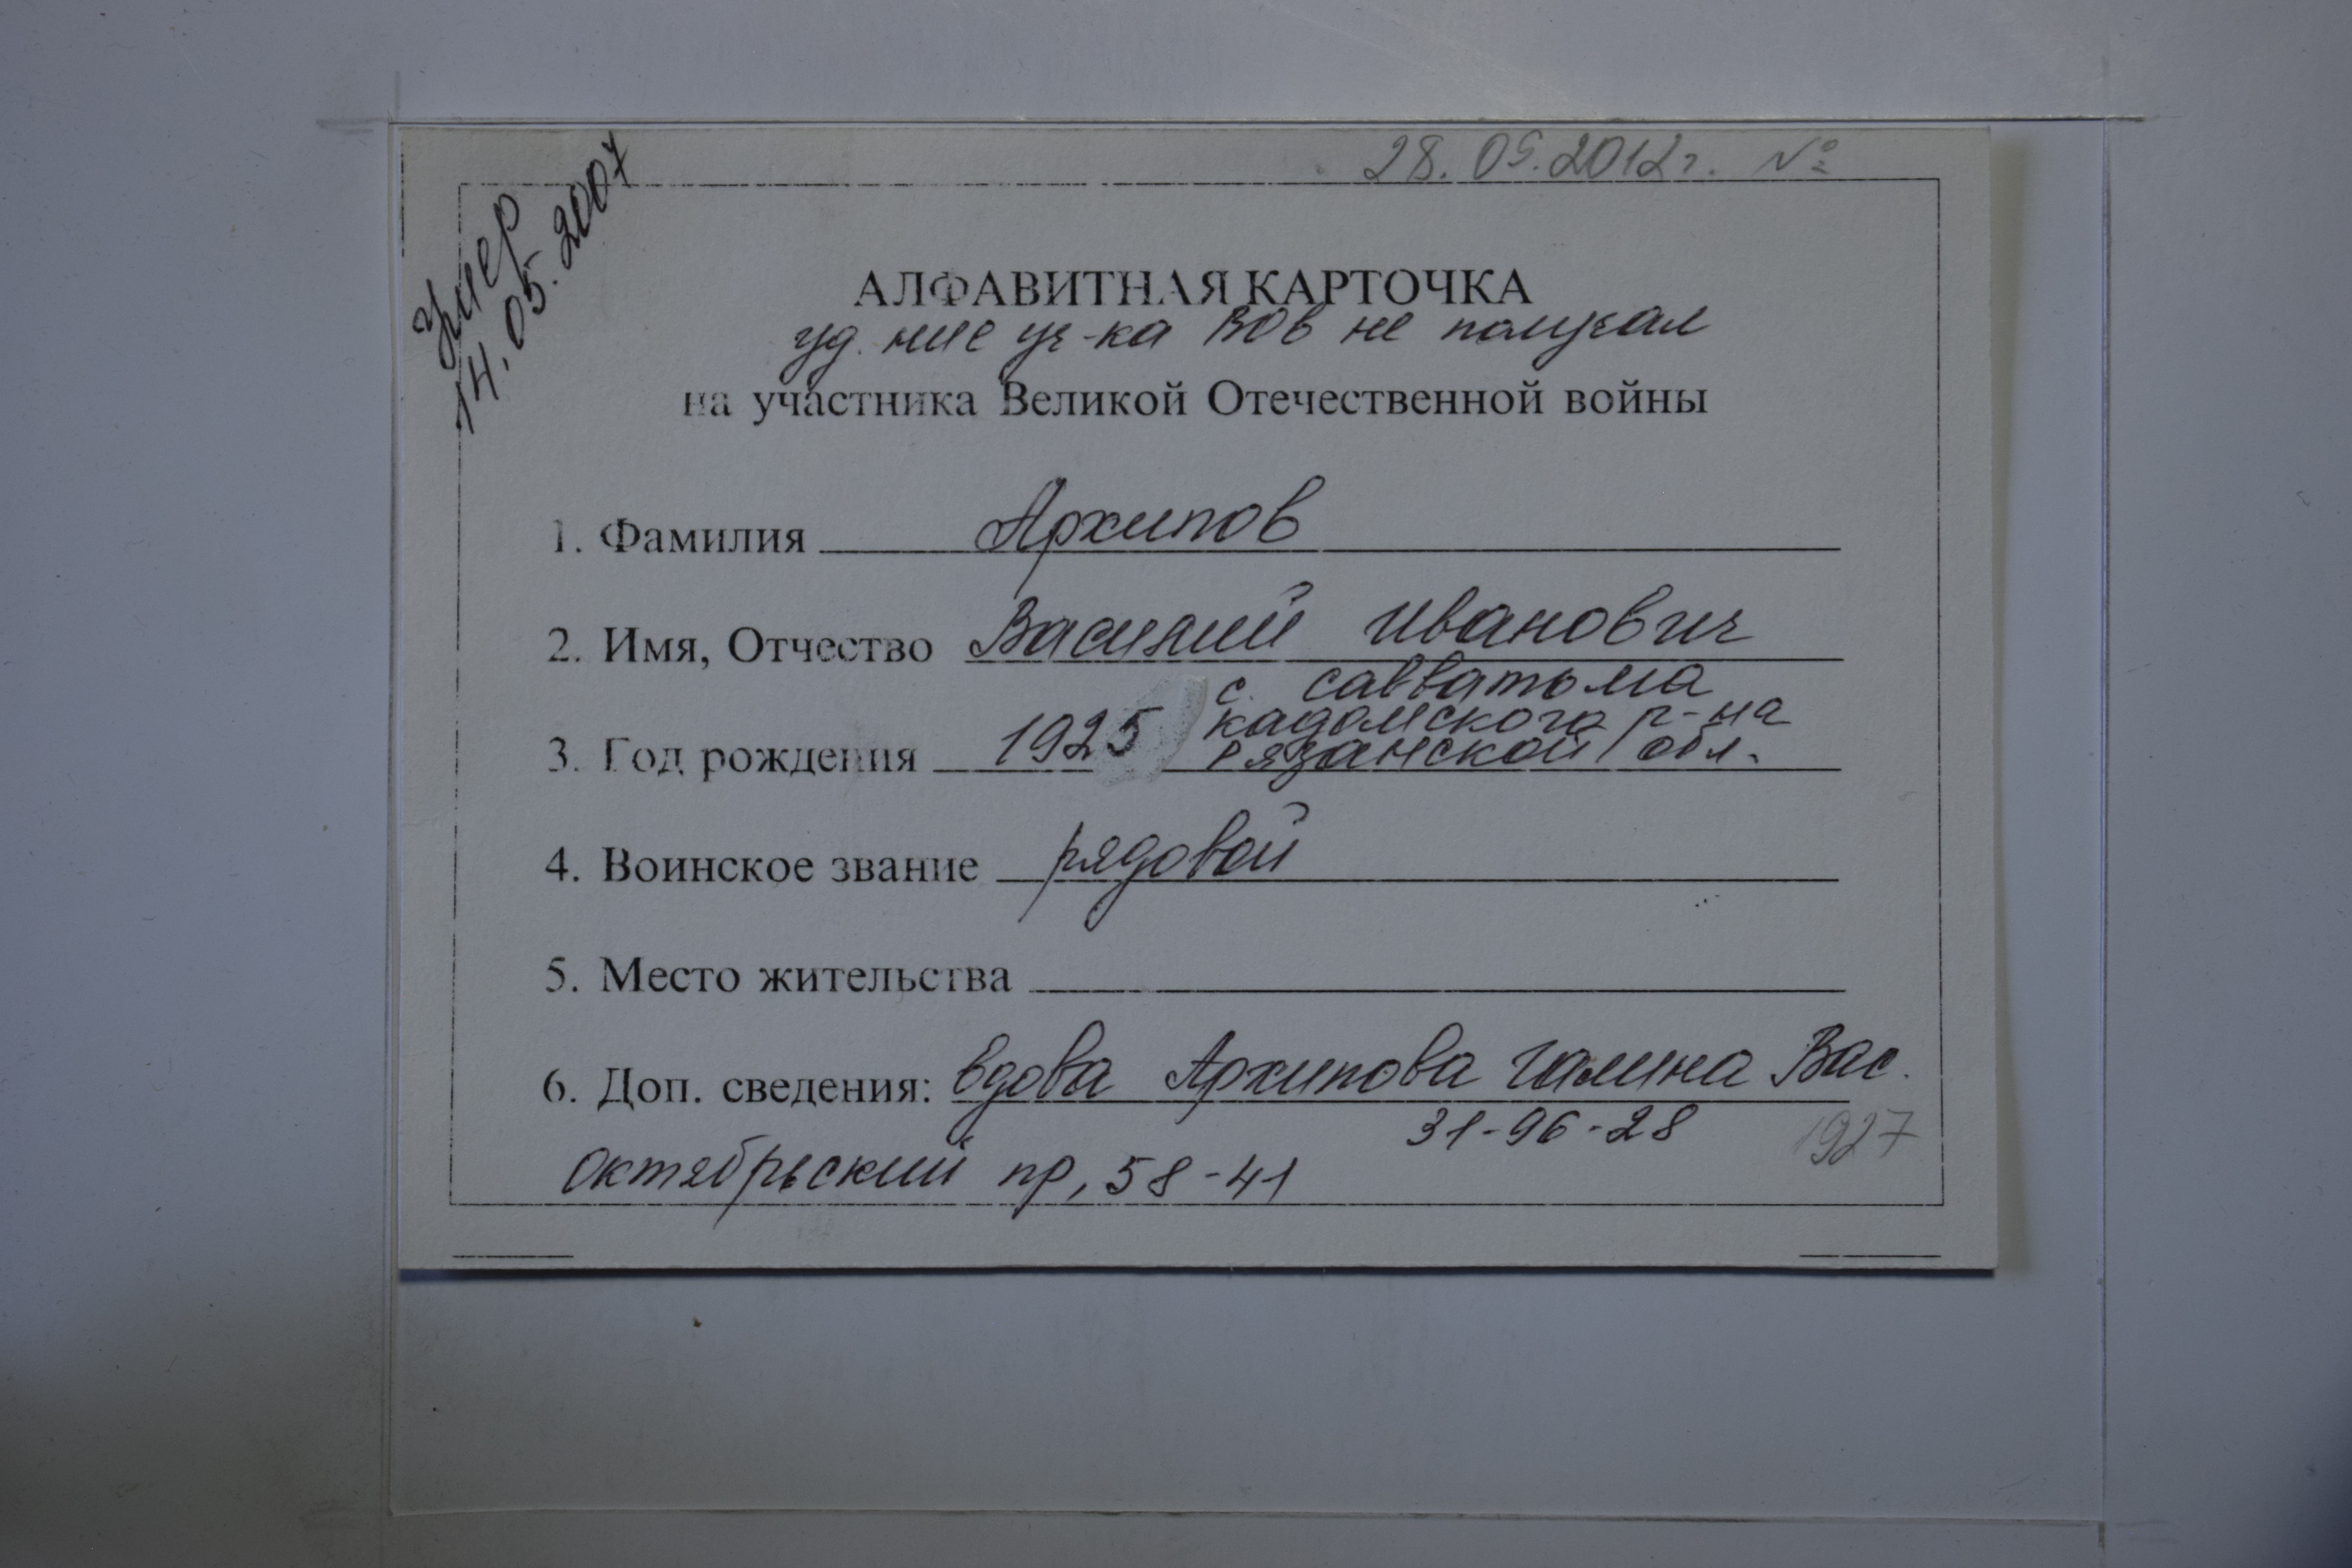 28.05.2012г. №
Умер
14.05.2007
АЛФАВИТНАЯ КАРТОЧКА
уд. ние уч-ка ВОВ не получал
на участника Великой Отечественной войны
1. Фамилия Архипов
2. Имя, Отчество Василий Иванович
с. савватьма
кадомского р-на
3. Год рождения 1925 рязанской обл.
4. Воинское звание рядовой
5. Место жительства
6. Доп. сведения: вдова Архипова Галина Вас.
31-96-28 1927
Октябрьский пр, 58-41